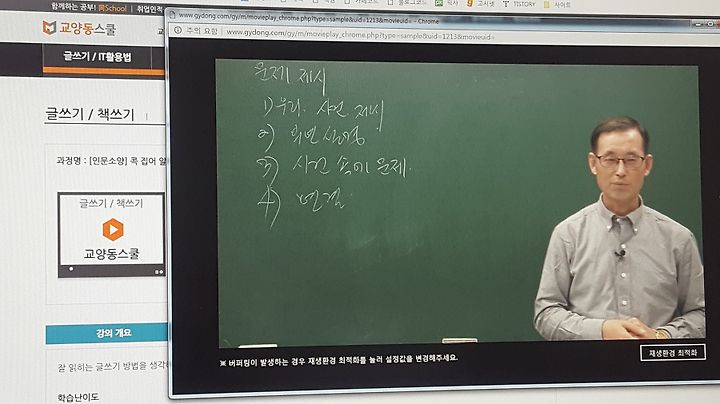 함께하는 공부! 共School | 취업인적
www.gydong.com/gy/m/movieplay_chrome.php?type=sample&uid=1213&movieuid= - Chrome
주의 요함 | www.gydong.com/gy/m/movieplay_chrome.php?type=sample&uid=1213&movieuid=
티스토리
고시넷
TISTORY
사이트
교양동스쿨
글쓰기 / IT활용법
글쓰기 / 책쓰기
과정명 : [인문소양] 콕 집어 알
글쓰기 / 책쓰기
교양동스쿨
강의 개요
잘 읽히는 글쓰기 방법을 생각
학습난이도
문제 제시
1) 우리. 사건 제시
2)
3) 사건 속에 문제.
4) 연결
※ 버퍼링이 발생하는 경우 재생환경 최적화를 눌러 설정값을 변경해주세요.
재생환경 최적화